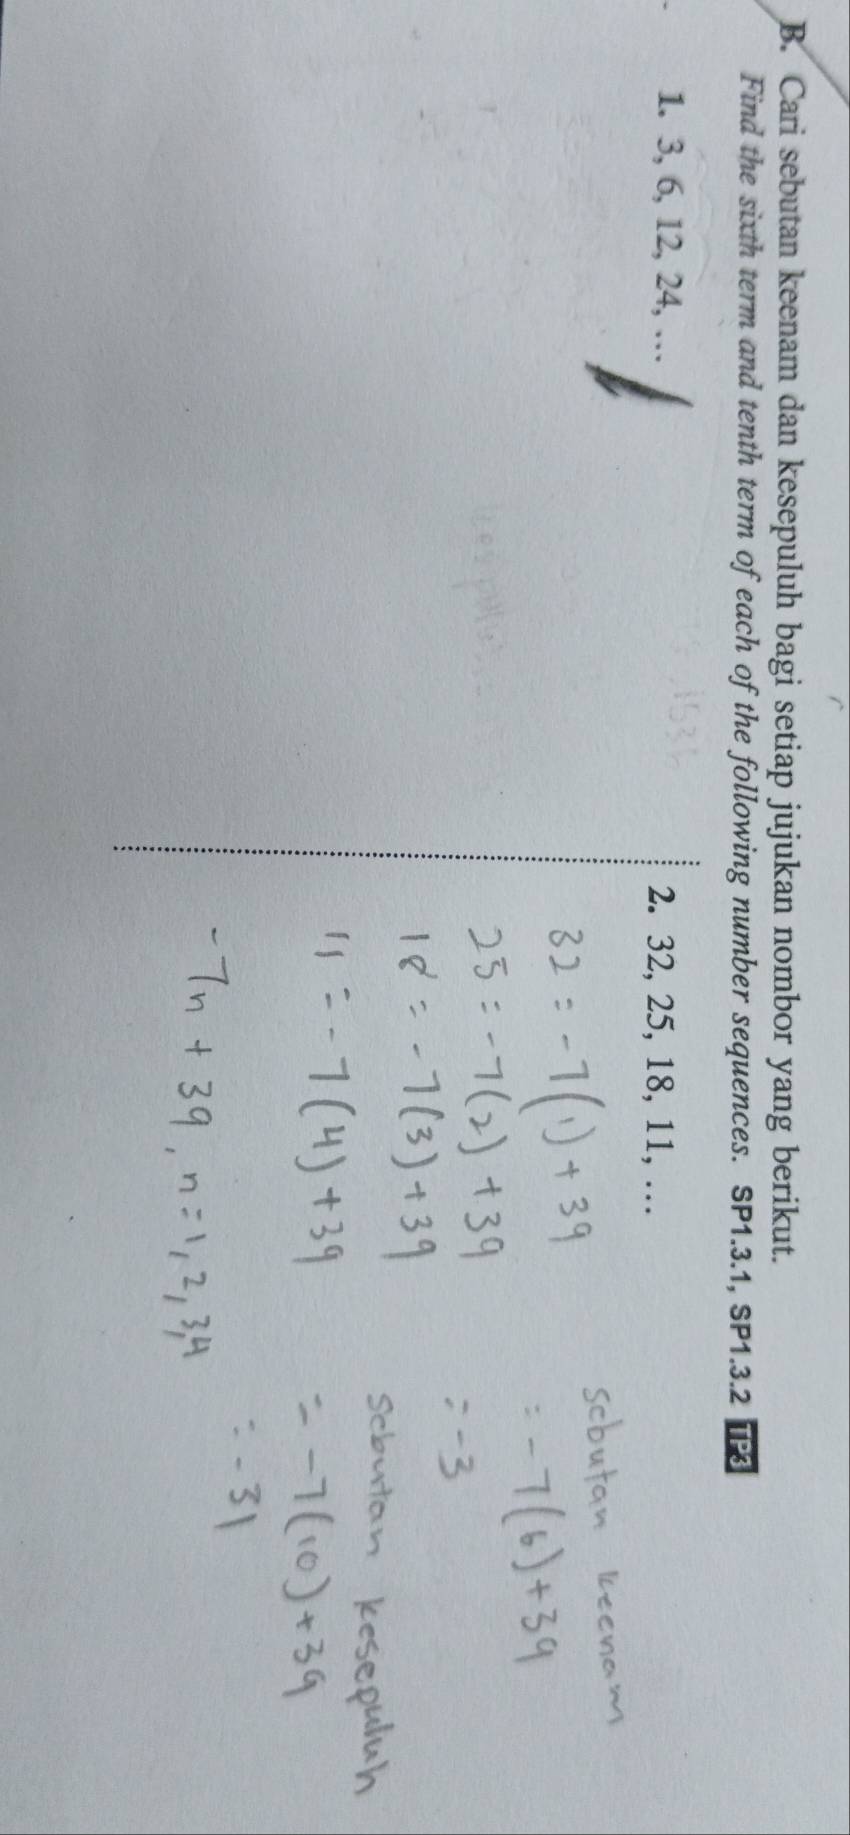 B. Cari sebutan keenam dan kesepuluh bagi setiap jujukan nombor yang berikut.
Find the sixth term and tenth term of each of the following number sequences. SP1.3.1, SP1.3.2 TP3
1. 3, 6, 12, 24, ...
2. 32, 25, 18, 11, ...
32 = -7(1) + 39
25 = -7(2) + 39
18 = -7(3) + 39
11 = -7(4) + 39
-7n + 39, n = 1, 2, 3, 4
sebutan keenam
= -7(6) + 39
= -3
sebutan kesepuluh
= -7(10) + 39
= -31